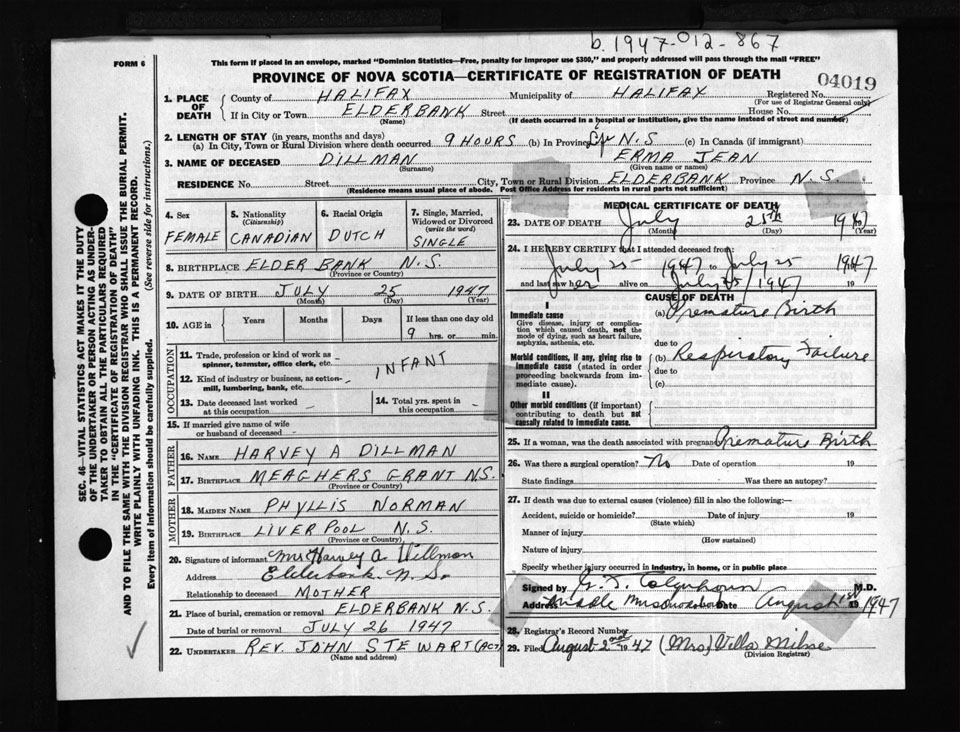 b. 1947-012-867
FORM 6
This form if placed in an envelope, marked "Dominion Statistics—Free, penalty for improper use $300," and properly addressed will pass through the mail "FREE"
PROVINCE OF NOVA SCOTIA—CERTIFICATE OF REGISTRATION OF DEATH
04019
1. PLACE OF DEATH County of HALIFAX Municipality of HALIFAX Registered No.
(For use of Registrar General only)
If in City or Town ELDERBANK Street House No.
(Name) (If death occurred in a hospital or institution, give the name instead of street and number)
2. LENGTH OF STAY (in years, months and days)
(a) In City, Town or Rural Division where death occurred 9 HOURS (b) In Province N.S (c) In Canada (if immigrant)
3. NAME OF DECEASED DILLMAN ERMA JEAN
(Surname) (Given name or names)
RESIDENCE No. Street City, Town or Rural Division ELDERBANK Province N.S.
(Residence means usual place of abode. Post Office Address for residents in rural parts not sufficient)
4. Sex FEMALE
5. Nationality (Citizenship) CANADIAN
6. Racial Origin DUTCH
7. Single, Married, Widowed or Divorced (write the word) SINGLE
8. BIRTHPLACE ELDER BANK N.S.
(Province or Country)
9. DATE OF BIRTH JULY 25 1947
(Month) (Day) (Year)
10. AGE in Years Months Days If less than one day old
9 hrs. or min.
OCCUPATION
11. Trade, profession or kind of work as spinner, teamster, office clerk, etc. - INFANT
12. Kind of industry or business, as cotton-mill, lumbering, bank, etc. -
13. Date deceased last worked at this occupation -
14. Total yrs. spent in this occupation -
15. If married give name of wife or husband of deceased -
FATHER
16. Name HARVEY A DILLMAN
17. Birthplace MEAGHERS GRANT N.S.
(Province or Country)
MOTHER
18. Maiden Name PHYLLIS NORMAN
19. Birthplace LIVERPOOL N.S.
(Province or Country)
20. Signature of informant Mrs Harvey A Dillman
Address Elderbank N.S.
Relationship to deceased MOTHER
21. Place of burial, cremation or removal ELDERBANK N.S.
Date of burial or removal JULY 26 1947
22. UNDERTAKER REV. JOHN STEWART (ACT)
(Name and address)
MEDICAL CERTIFICATE OF DEATH
23. DATE OF DEATH July 25th 1947
(Month) (Day) (Year)
24. I HEREBY CERTIFY that I attended deceased from:
July 25 1947 to July 25 1947
and last saw her alive on July 25/1947 19
CAUSE OF DEATH
I
Immediate cause (a) Premature Birth
Give disease, injury or complication which caused death, not the mode of dying, such as heart failure, asphyxia, asthenia, etc.
due to
Morbid conditions, if any, giving rise to immediate cause (stated in order proceeding backwards from immediate cause).
(b) Respiratory Failure
due to
(c)
II
Other morbid conditions (if important) contributing to death but not causally related to immediate cause.
25. If a woman, was the death associated with pregnan Premature Birth
26. Was there a surgical operation? No Date of operation 19
State findings Was there an autopsy?
27. If death was due to external causes (violence) fill in also the following:—
Accident, suicide or homicide? Date of injury 19
(State which)
Manner of injury
(How sustained)
Nature of injury
Specify whether injury occurred in industry, in home, or in public place
Signed by M.D.
Address Middle Musquodoboit Date August 1st 1947
28. Registrar's Record Number
29. Filed August 2nd 1947 (Mrs)
(Division Registrar)
SEC. 46—VITAL STATISTICS ACT MAKES IT THE DUTY
OF THE UNDERTAKER OR PERSON ACTING AS UNDER-
TAKER TO OBTAIN ALL THE PARTICULARS REQUIRED
IN THE "CERTIFICATE OF REGISTRATION OF DEATH"
AND TO FILE THE SAME WITH THE DIVISION REGISTRAR WHO SHALL ISSUE THE BURIAL PERMIT.
WRITE PLAINLY WITH UNFADING INK. THIS IS A PERMANENT RECORD.
Every item of information should be carefully supplied. (See reverse side for instructions.)